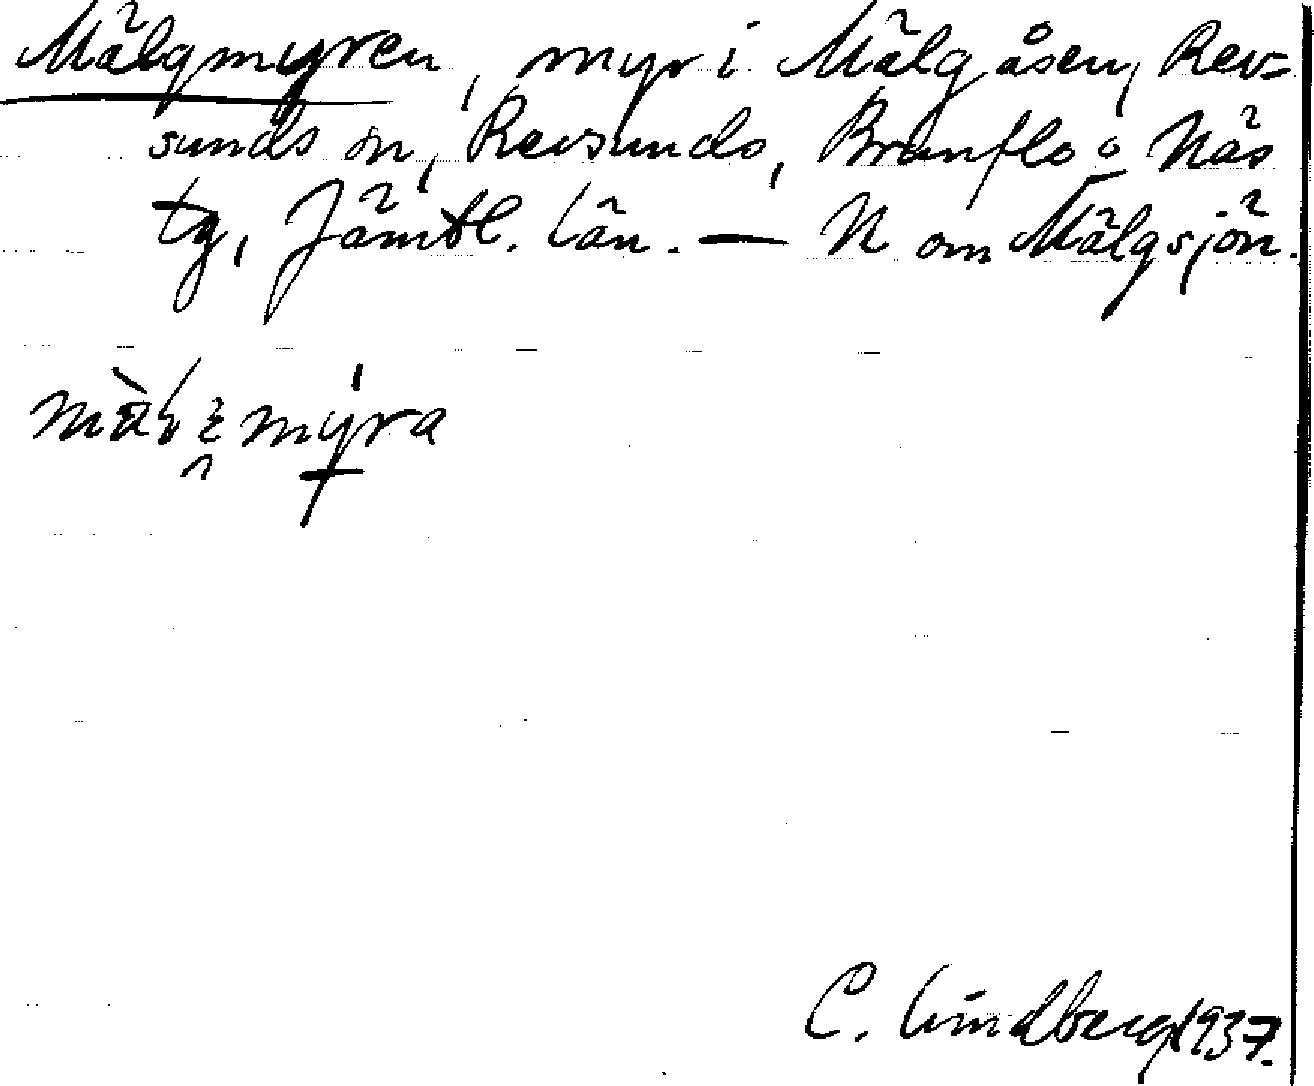 Mälgmyren, myr i Mälgåsen, Rev=
sunds sn, Revsunds, Brunflo o Näs
tg, Jämtl. län. — N om Mälgsjön.
C. Lindberg 1937.